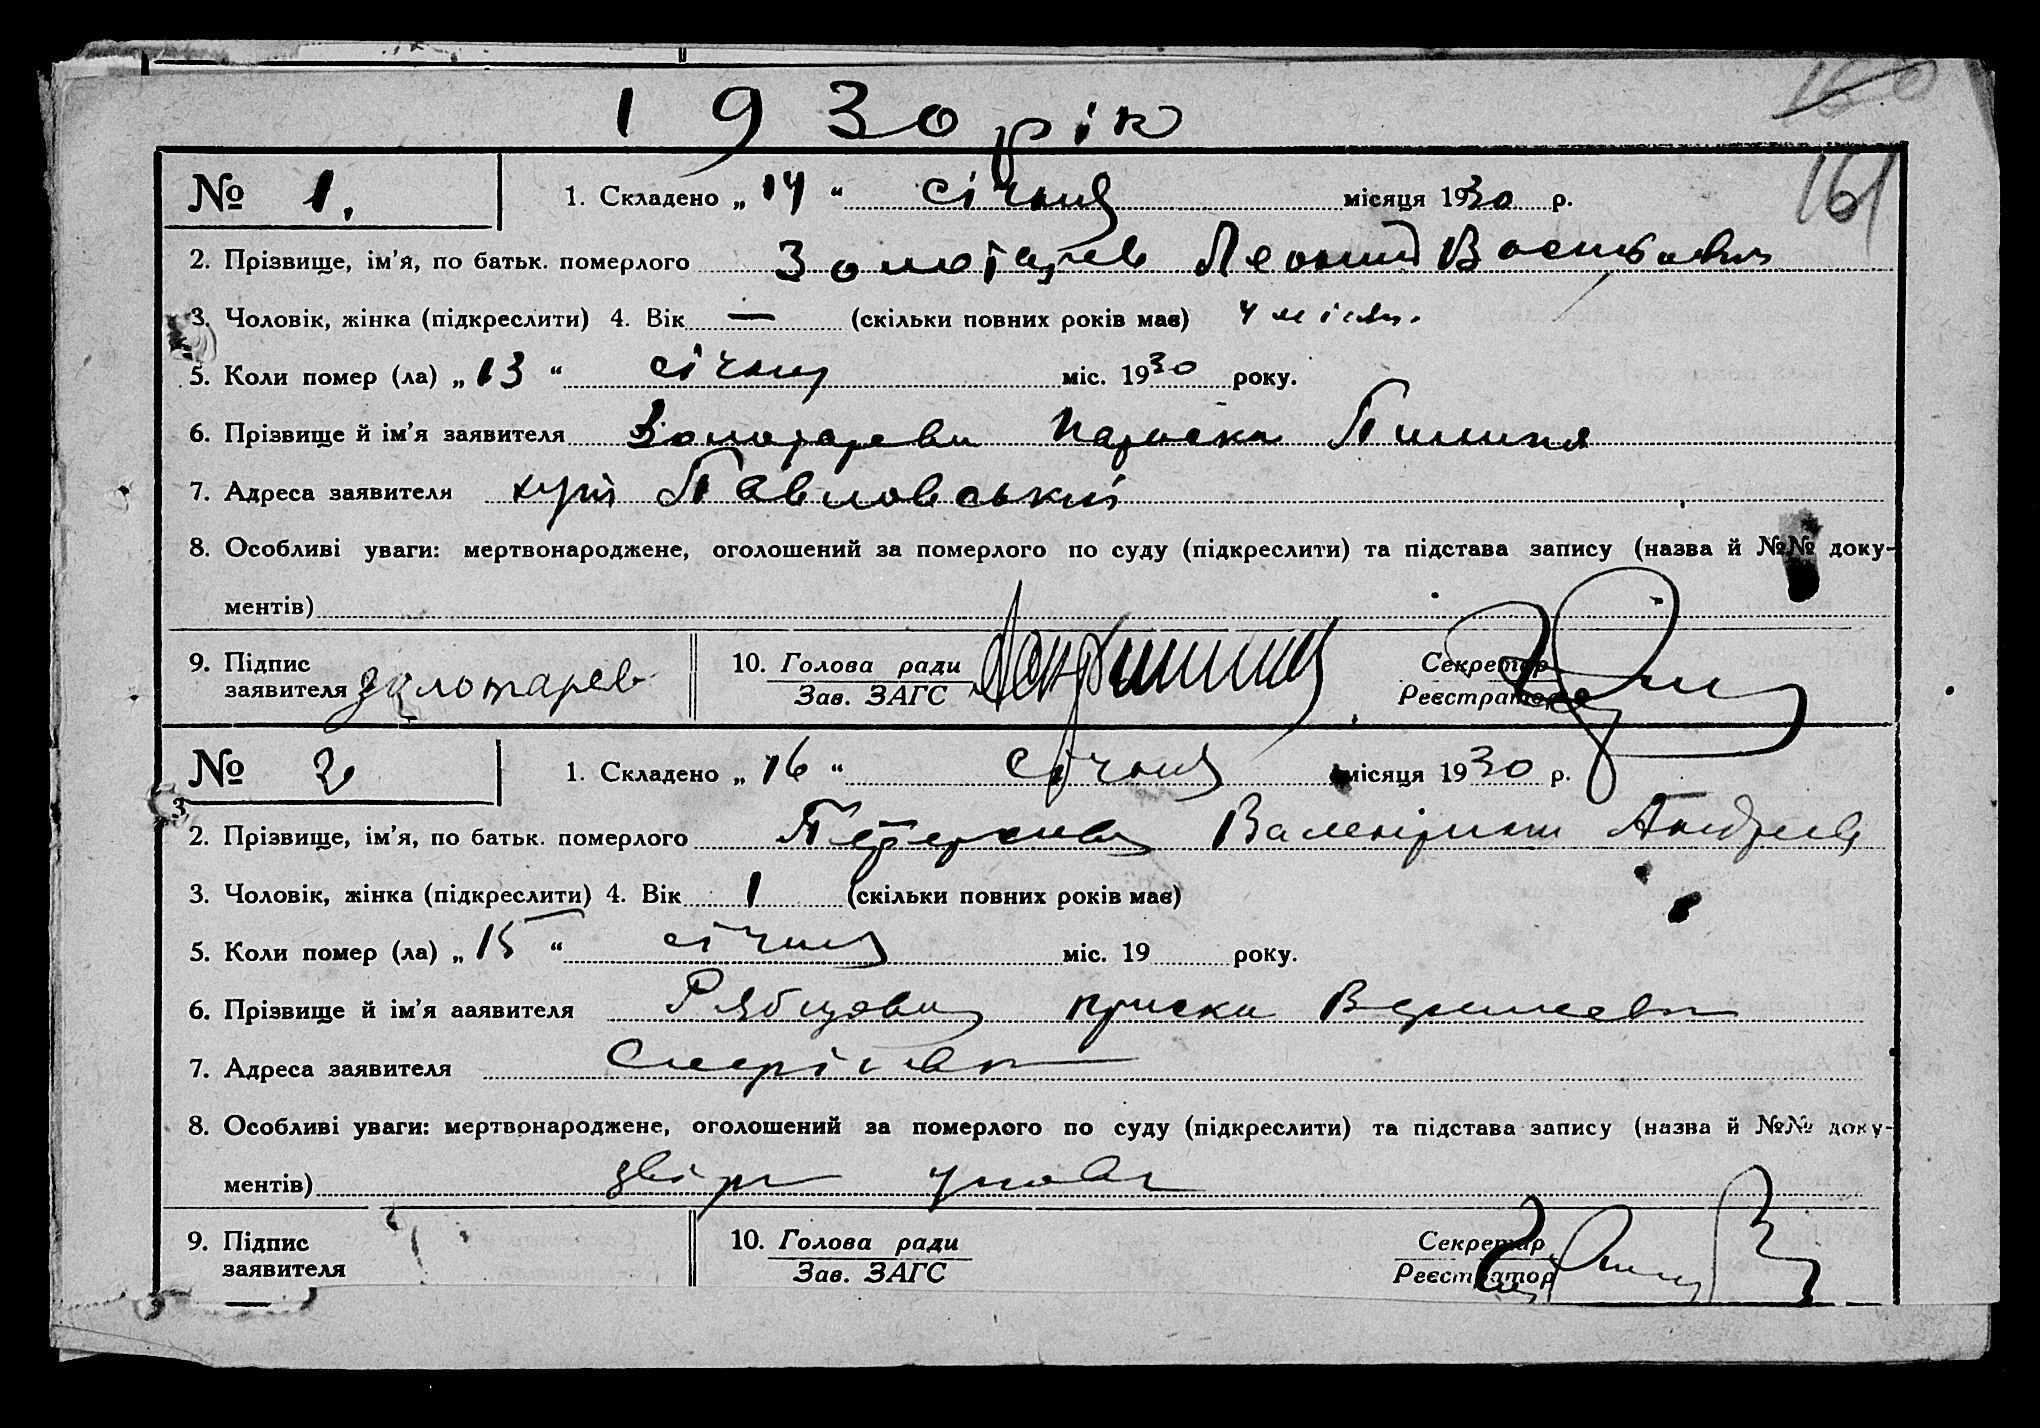 160
1930 рік
161
№ 1. 1. Складено „ 14 “ січня місяця 1930 р.
2. Прізвище, ім'я, по батьк. померлого Золотарев Леонид
3. Чоловік, жінка (підкреслити) 4. Вік — (скільки повних років має) 4 місяц.
5. Коли помер (ла) „ 13 “ січня міс. 1930 року.
6. Прізвище й ім'я заявителя Золотарева
7. Адреса заявителя хутір Павловський
8. Особливі уваги: мертвонароджене, оголошений за померлого по суду (підкреслити) та підстава запису (назва й №№ доку-
ментів)
9. Підпис заявителя золотарев 10. Голова ради Зав. ЗАГС Секретар Реєстратор
№ 2 1. Складено „ 16 “ січня місяця 1930 р.
2. Прізвище, ім'я, по батьк. померлого Валентин Андреев
3. Чоловік, жінка (підкреслити) 4. Вік 1 (скільки повних років має)
5. Коли помер (ла) „ 15 “ січня міс. 19 року.
6. Прізвище й ім'яааявителя Рябцова приска
7. Адреса заявителя
8. Особливі уваги: мертвонароджене, оголошений за померлого по суду (підкреслити) та підстава запису (назва й №№ доку-
ментів)
9. Підпис заявителя 10. Голова ради Зав. ЗАГС Секретар Реєстратор